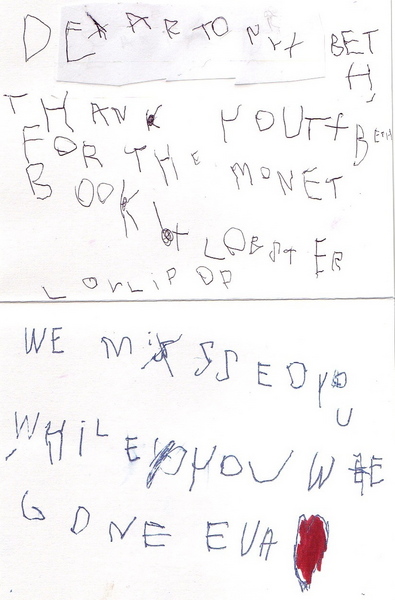 DEAR TONY + BET
H,
THANK YOU T+ BETH
FOR THE MONET
BOOK + LOBSTER
LOLLIPOP
WE MISSED YO
U
WHILE YOU WEE
GONE EVA